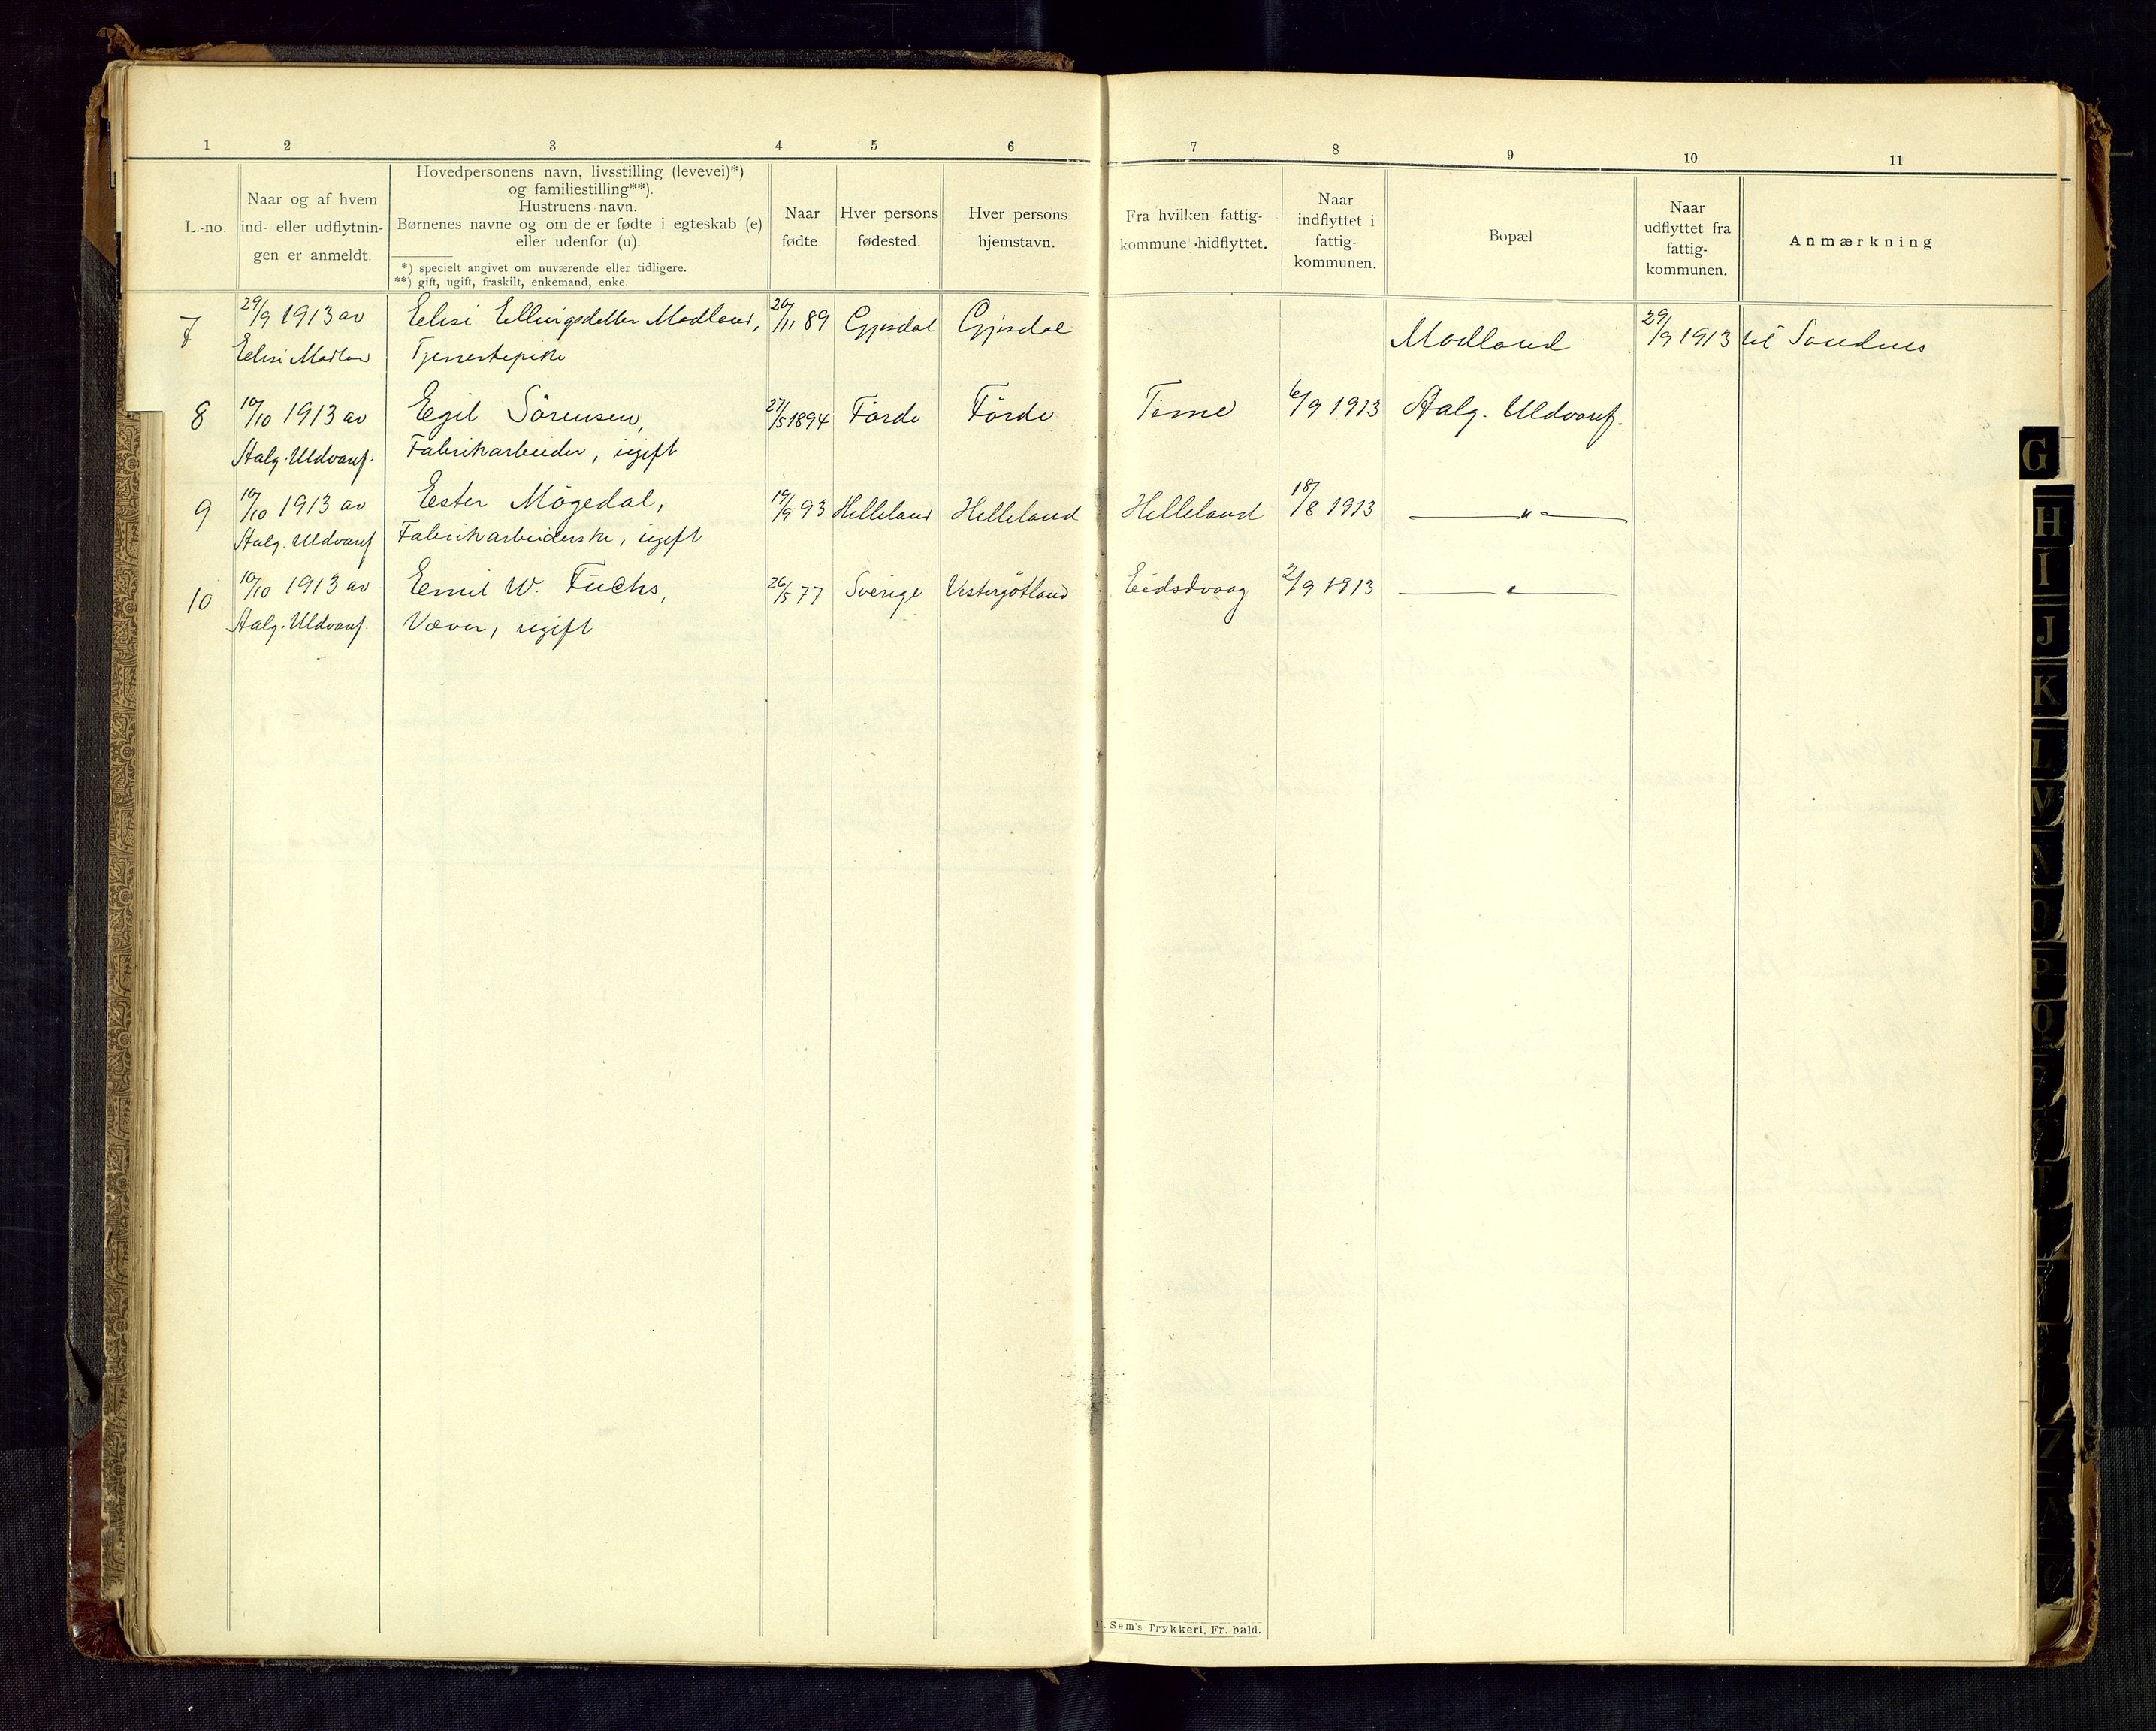 1 2 3 4 5 6 7 8 9 10 11
L.-no.
Naar og af hvem
ind- eller udflytnin-
gen er anmeldt.
Hovedpersonens navn, livsstilling (levevei)*)
og familiestilling**).
Hustruens navn.
Børnenes navne og om de er fødte i egteskab (e)
eller udenfor (u).
*) specielt angivet om nuværende eller tidligere.
**) gift, ugift, fraskilt, enkemand, enke.
Naar
fødte.
Hver persons
fødested.
Hver persons
hjemstavn.
Fra hvilken fattig-
kommune hidflyttet.
Naar
indflyttet i
fattig-
kommunen.
Bopæl
Naar
udflyttet fra
fattig-
kommunen.
Anmærkning
7 29/9 1913 av Elise Ellingsdatter Modland, 20/11 89 Gjesdal Gjesdal Modland 29/9 1913 til Sandnes
Tjenestepike
8 10/10 1913 av Egil Sörensen, 27/5 1894 Förde Förde Time 6/9 1913 Aalg. Uldvarf.
Aalg. Uldvarf. Fabrikarbeider, ugift
9 10/10 1913 av Ester Mögedal, 19/9 93 Helleland Helleland Helleland 18/8 1913 — " —
Aalg. Uldvarf Fabrikarbeiderske, ugift
10 10/10 1913 av Emil W. Fuchs, 26/5 77 Sverige Vestergötland Eidsvaag 2/9 1913 — " —
Aalg. Uldvarf. Væver, ugift
Sem's Trykkeri, Fr. hald.
G
H
I
J
K
L
M
N
O
P
Q
T
Z